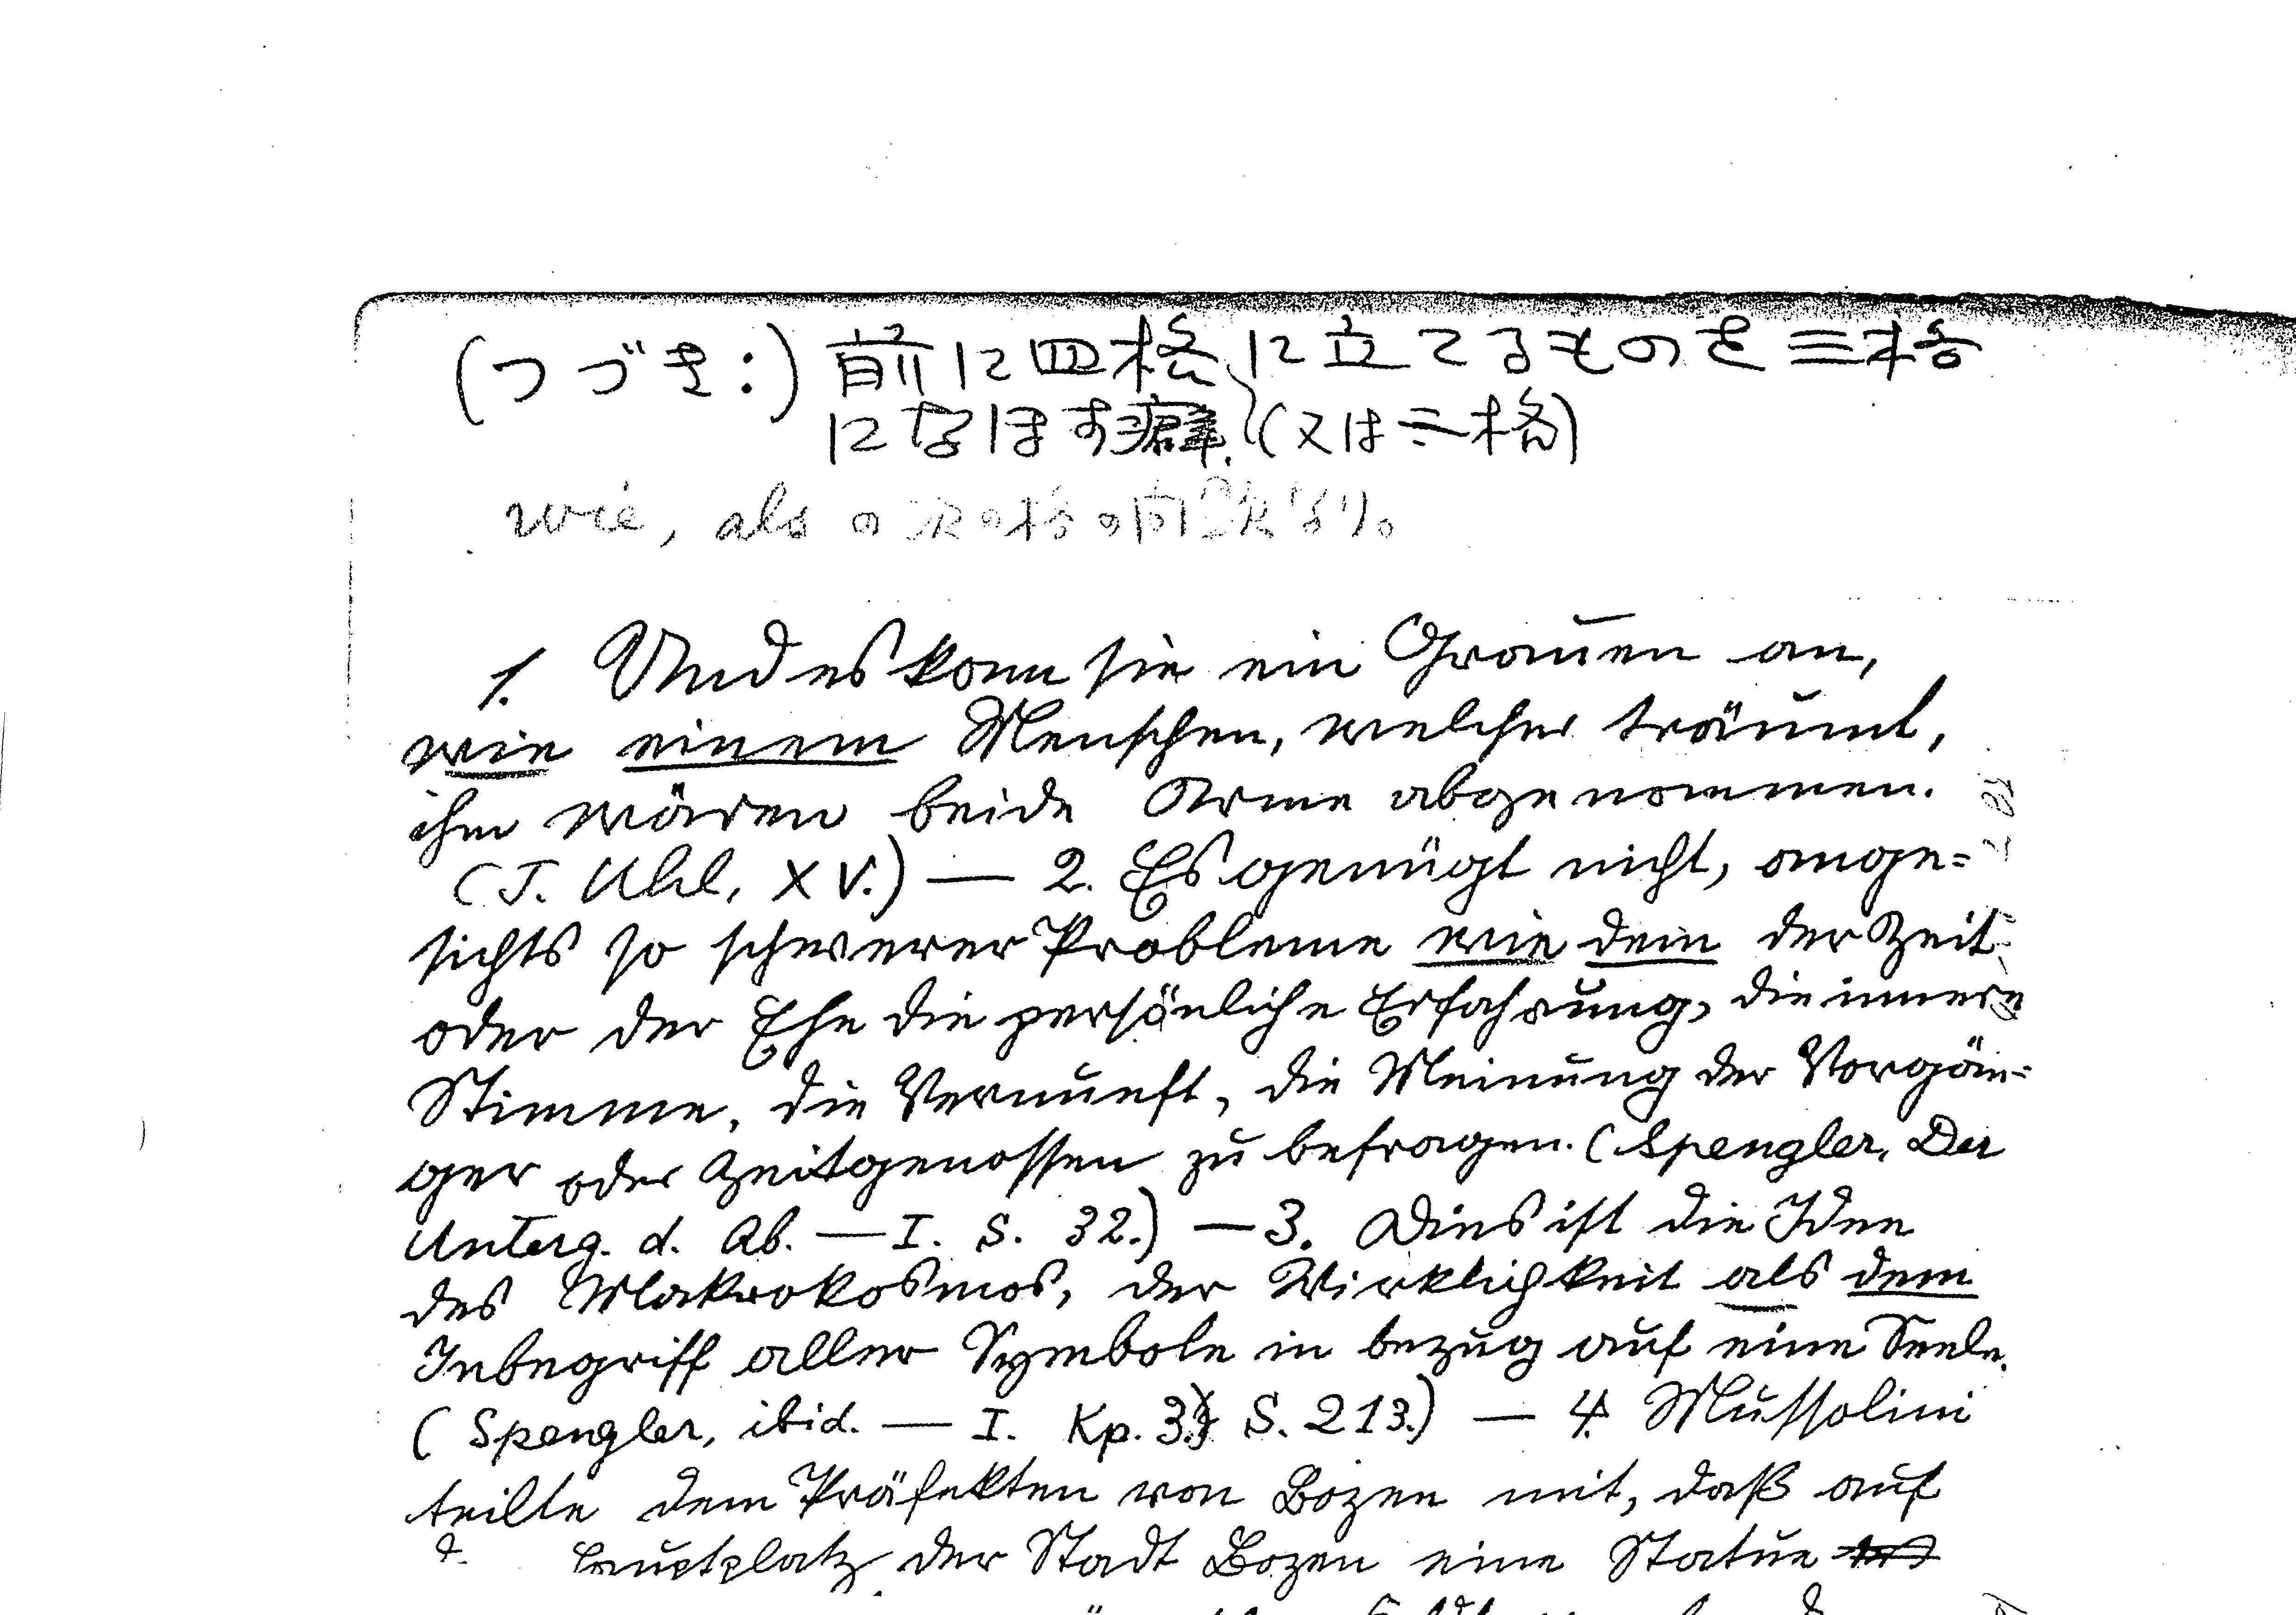 (つづき:) 前に四格に立てるものを三格
になほす癖.(又は三格)
wie, als の次の格の問題なり。
1. Und es kam sie ein Grauen an,
wie einem Menschen, welcher träumt,
ihm wären beide Arme abgenommen.
(J. Uhl, XV.) — 2. Es genügt nicht, ange=
sichts so schwerer Probleme wie dem der Zeit
oder der Ehe die persönliche Erfahrung, die innere
Stimme, die Vernunft, die Meinung der Vorgän=
ger oder Zeitgenossen zu befragen. (Spengler, Der
Unterg. d. Ab. — I. S. 32.) — 3. Dies ist die Idee
des Makrokosmos, der Wirklichkeit als dem
Inbegriff aller Symbole in bezug auf eine Seele.
(Spengler, ibid. — I. Kp. 3. S. 213.) — 4. Mussolini
teilte dem Präfekten von Bozen mit, daß auf
d. Hauptplatz der Stadt Bozen eine Statue